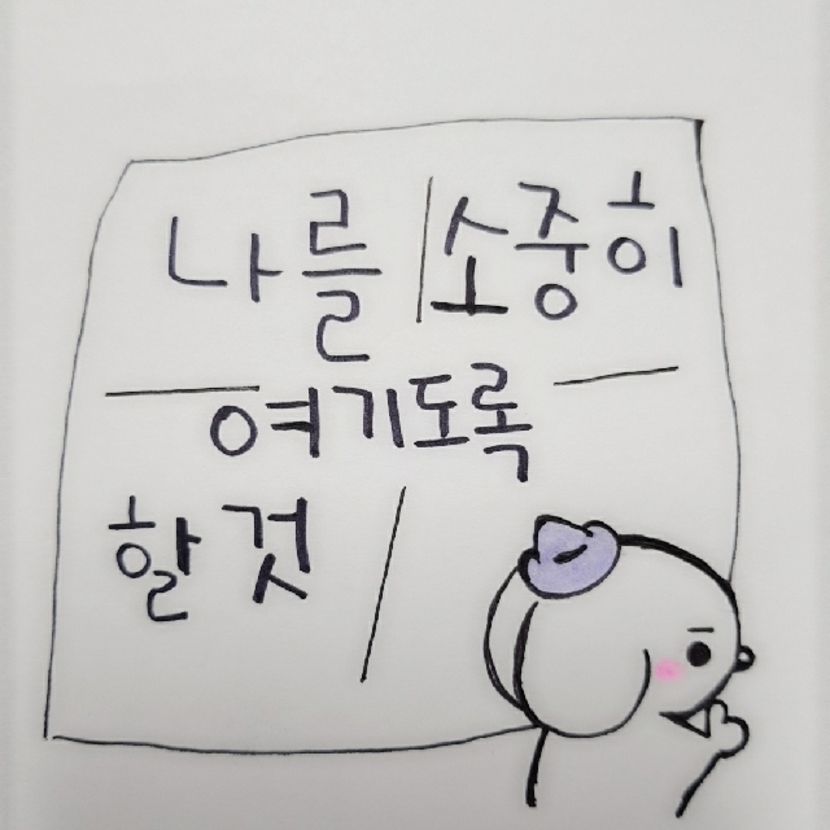 나를 소중히
여기도록
할 것